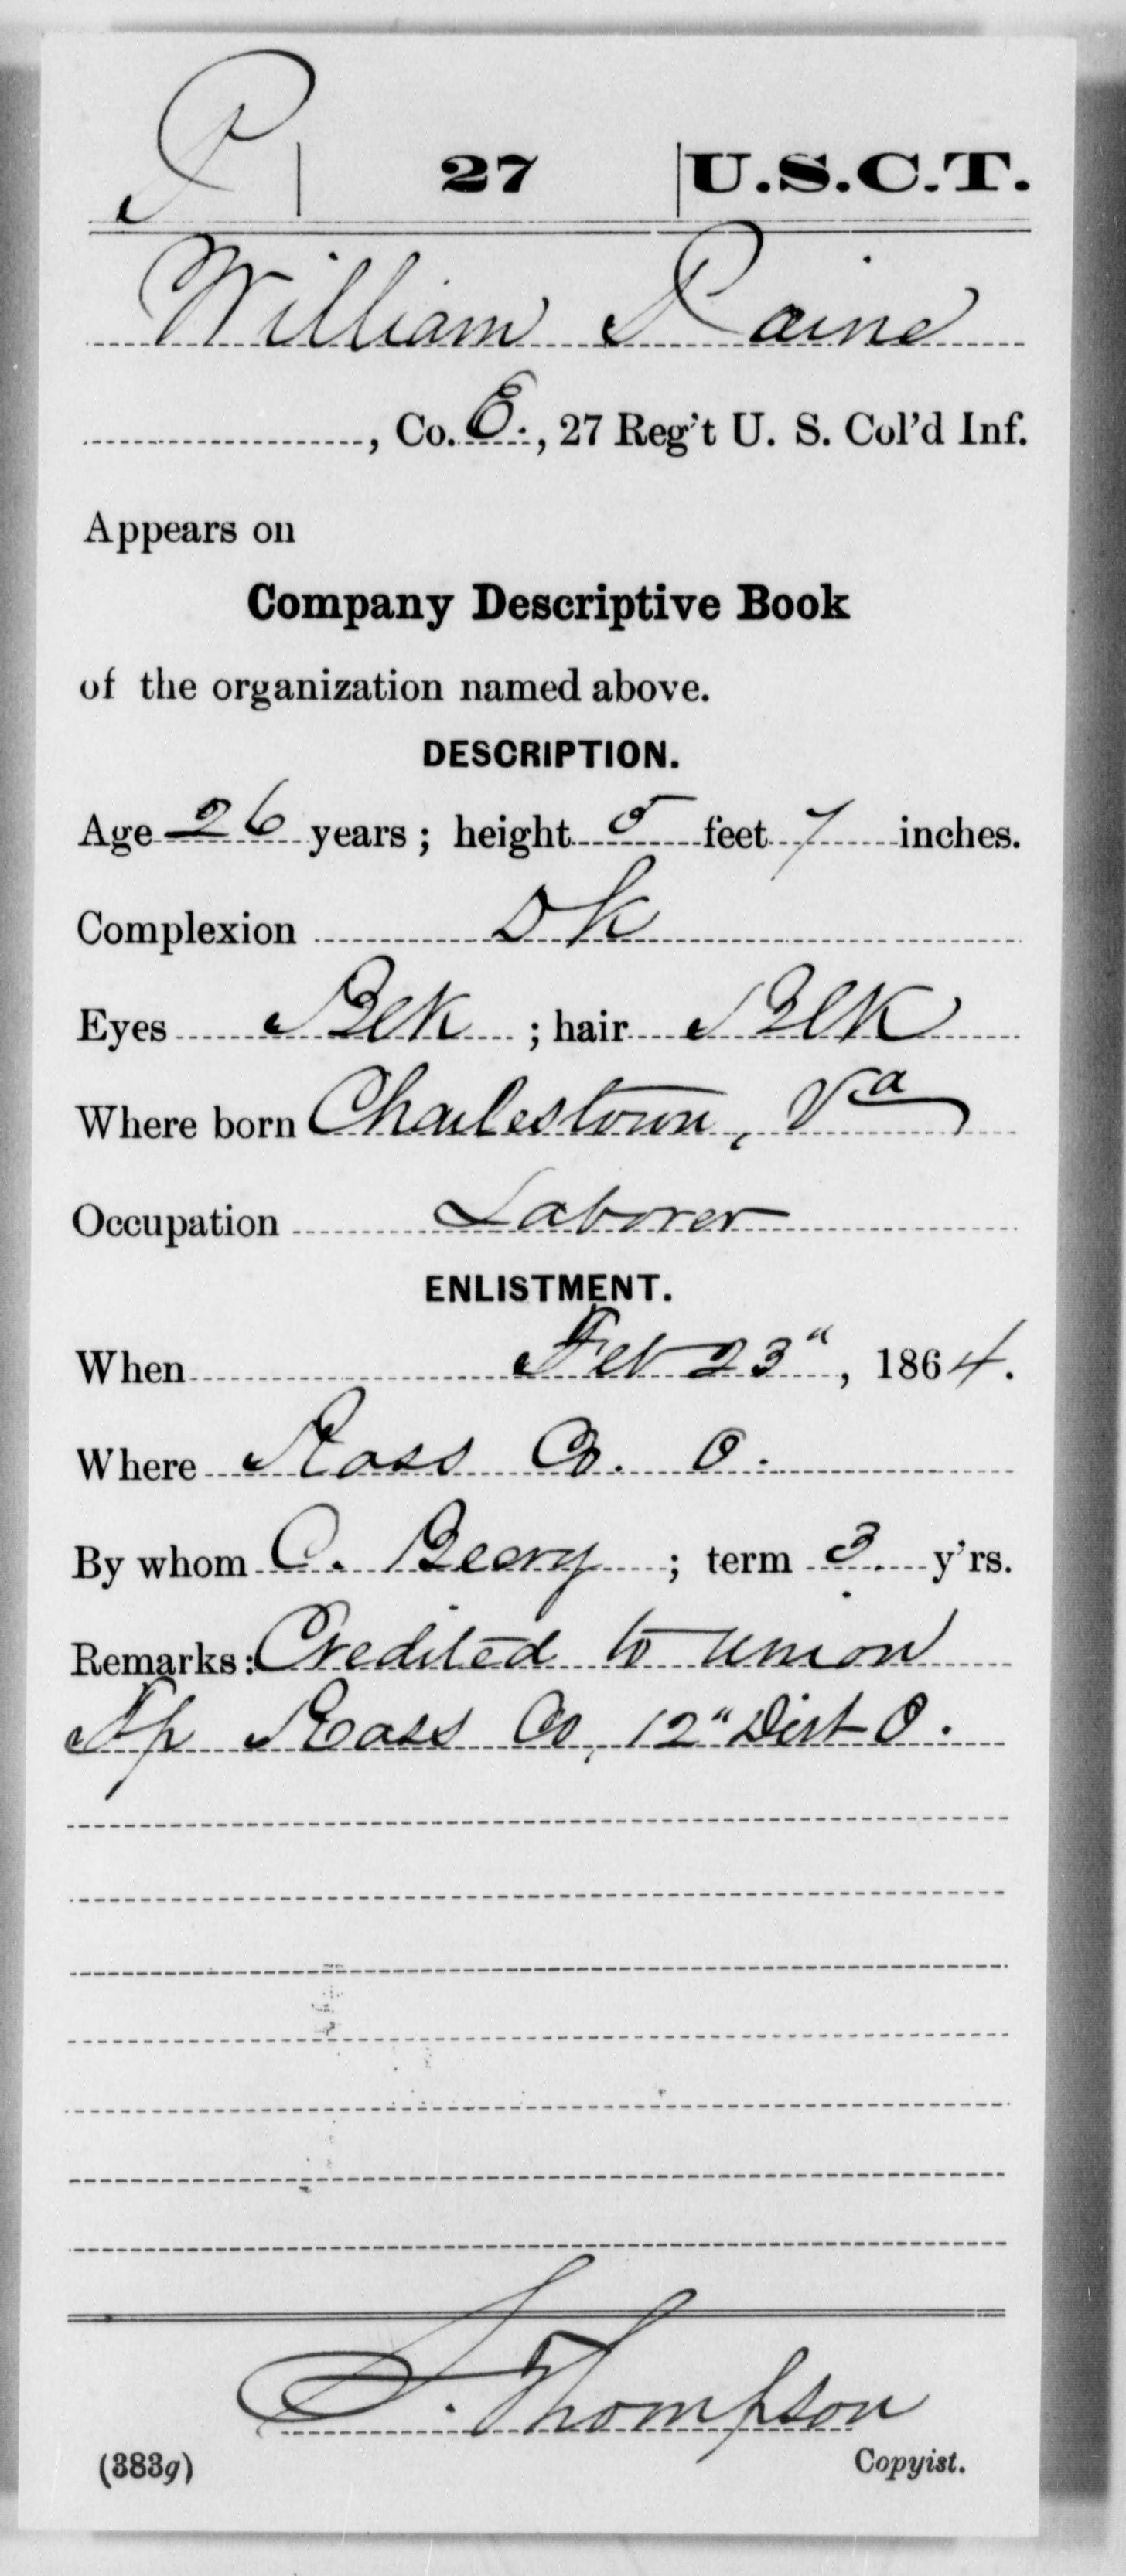 P 27 U.S.C.T.
William Paine
, Co. E., 27 Reg't U. S. Col'd Inf.
Appears on
Company Descriptive Book
of the organization named above.
DESCRIPTION.
Age 26 years; height 5 feet 7 inches.
Complexion Dk
Eyes Blk; hair Blk
Where born Charlestown, Va
Occupation Laborer
ENLISTMENT.
When Feb 23", 1864.
Where Ross Co. O.
By whom C. Beery; term 3 y'rs.
Remarks: Credited to Union
Tp Ross Co, 12" Dist O.
S. Thompson
(383g) Copyist.